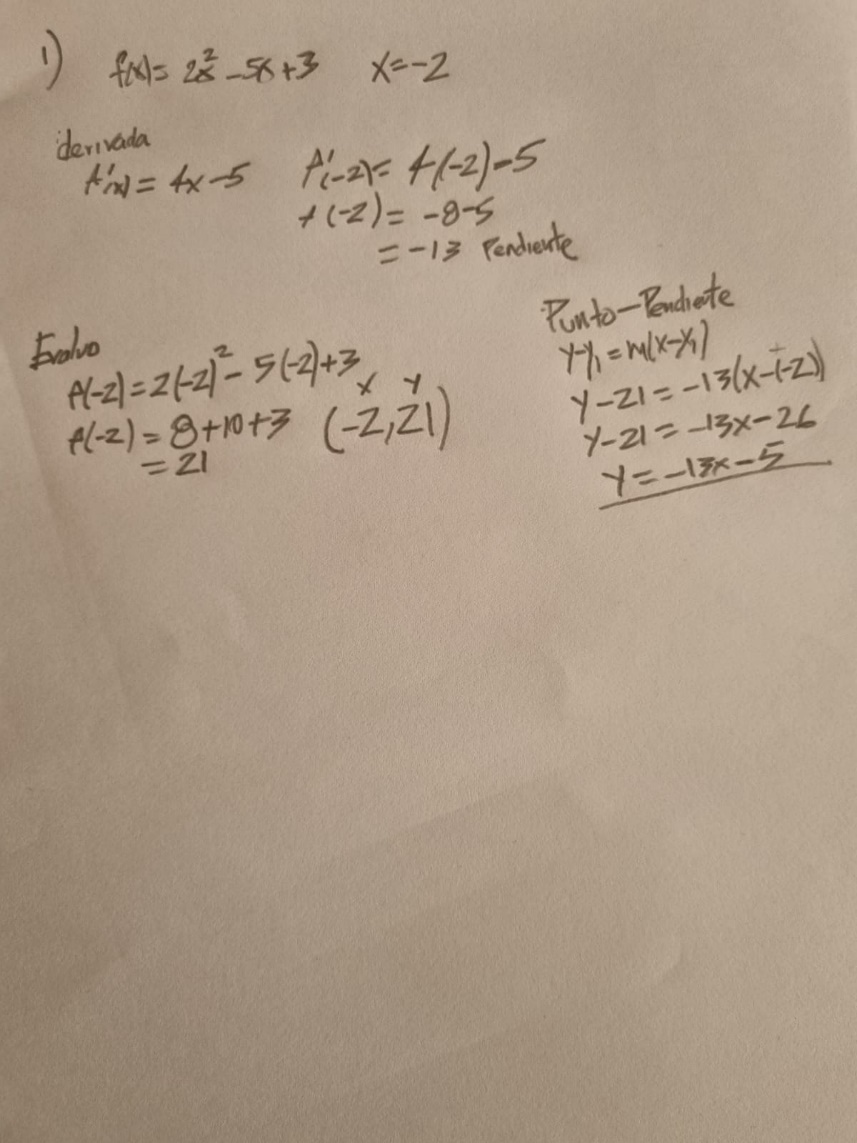 1) f(x)= 2x² -5x+3 x=-2
derivada
f'(x)= 4x-5 f'(-2)= 4(-2)-5
f(-2)= -8-5
= -13 Pendiente
Evaluo
f(-2)=2(-2)²- 5(-2)+3
f(-2)= 8+10+3
= 21
x y
(-2,21)
Punto-Pendiente
y-y₁=m(x-x₁)
y-21=-13(x-(-2))
y-21= -13x-26
y=-13x-5